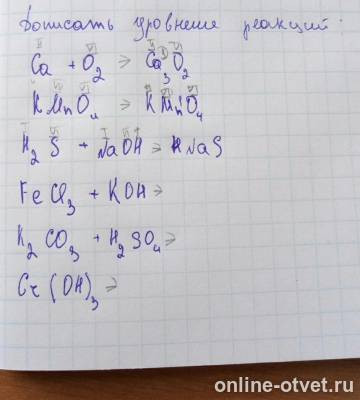 Дописать уровнение реакций:
Ca + O₂ → Ca₃O₂
KMnO₄ → KMnO₄
H₂S + NaOH → HNaS
FeCl₃ + KOH →
K₂CO₃ + H₂SO₄ →
Cr(OH)₃ →
online-otvet.ru